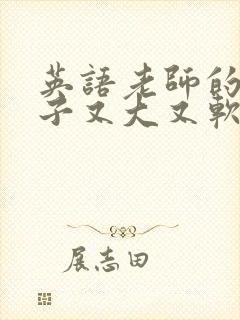 英語老師的
子又大又軟
展志田